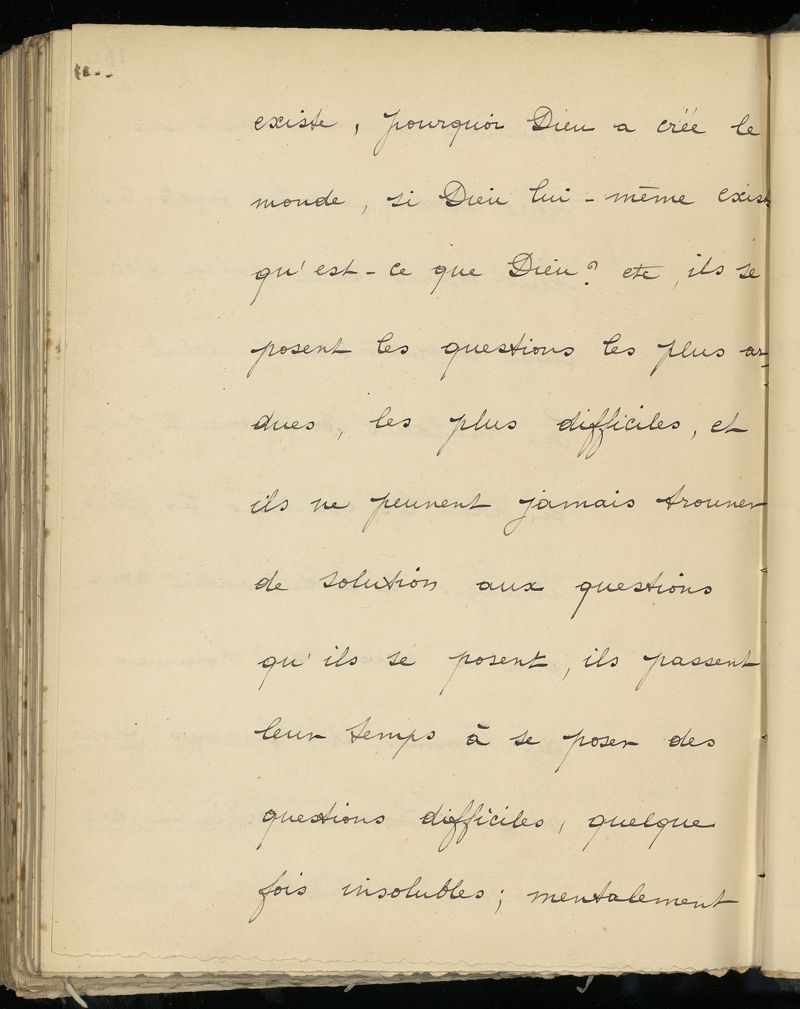 existe, pourquoi Dieu a créé le
monde, si Dieu lui-même exist
qu'est-ce que Dieu? etc, ils se
posent les questions les plus ar-
dues, les plus difficiles, et
ils ne peuvent jamais trouver
de solution aux questions
qu'ils se posent, ils passent
leur temps à se poser des
questions difficiles, quelque
fois insolubles; mentalement